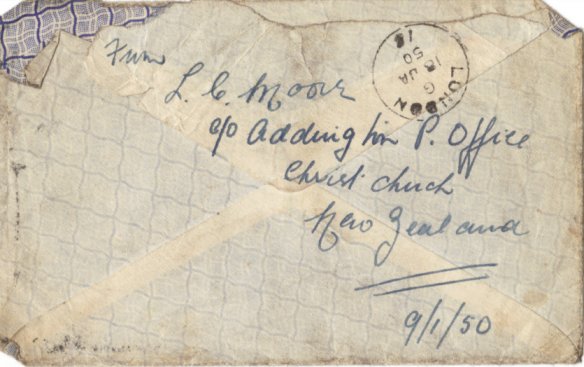 From
L. C. Moore
c/o Addington P. Office
Christchurch
New Zealand
9/1/50
LONDON
G
JA
50